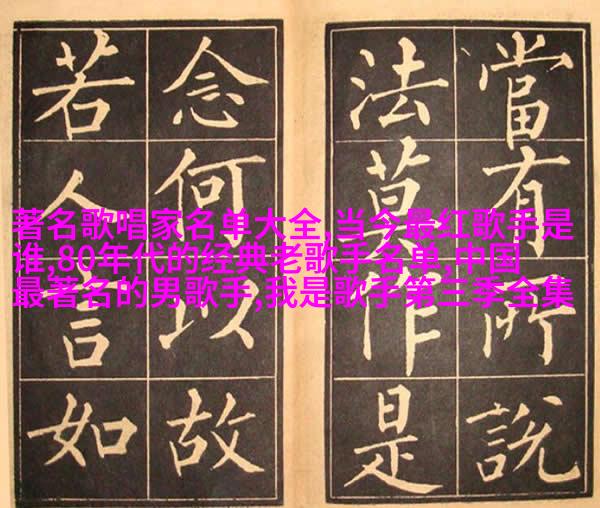 當有所說
法莫作是
念何以故
若人言如
著名歌唱家名单大全,当今最红歌手是
谁,80年代的经典老歌手名单,中国
最著名的男歌手,我是歌手第三季全集